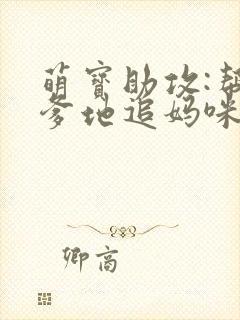 萌宝助攻:帮
爹地追妈咪
卿商